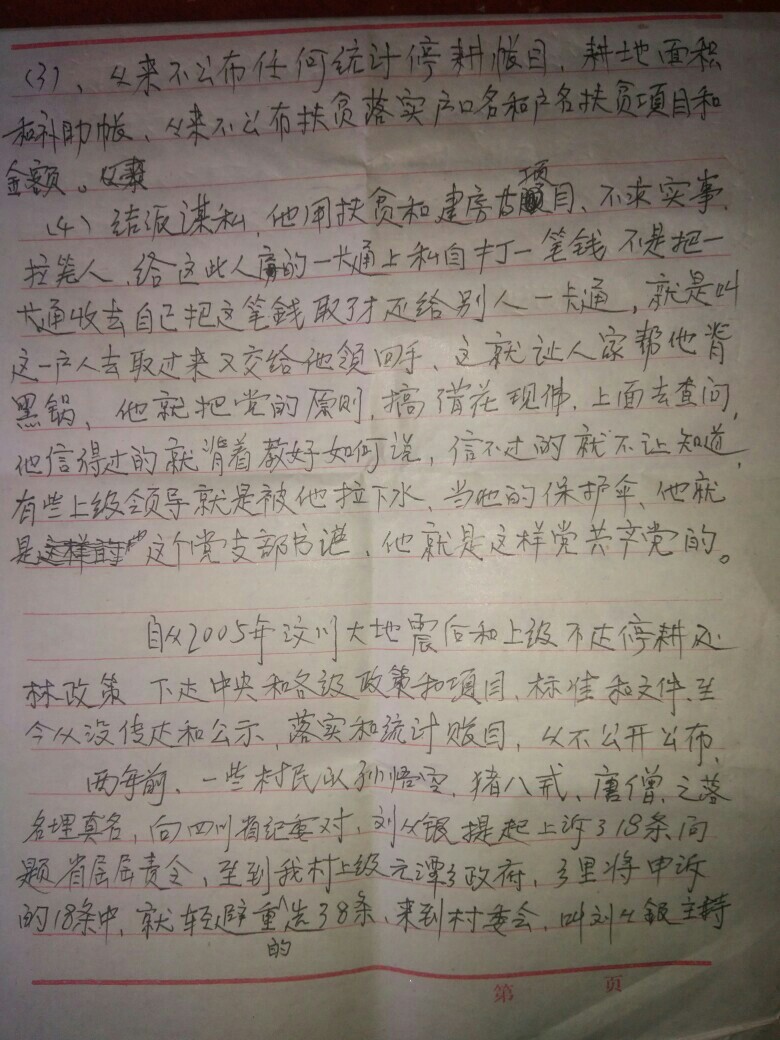 (3)、从来不公布任何统计停耕帐目、耕地面积
和补助帐、从来不公布扶贫落实户口名和户名扶贫項目和
金额。
(4)结派谋私,他用扶贫和建房项目、不求实事、
拉笼人、给这些人的一卡通上私自打一笔钱 不是把一
卡通收去自己把这笔錢取了才还给别人一卡通,就是叫
这一户人去取过来又交给他领回手、这就让人家帮他背
黑锅,他就把党的原则,搞借花现佛,上面去查问,
他信得过的就背着教好如何说,信不过的就不让知道,
有些上级领导就是被他拉下水、当他的保护伞、他就
是这个党支部书、他就是这样党共产党的。
自从2005年汶川大地震后和上级下达停耕还
林政策 下达中央和各级政策和項目、标准和文件、至
今从没传达和公示,落实和统计账目,从不公开公布、
两年前、一些村民以孙悟空,猪八戒、唐僧之落
名埋真名,向四川省纪委对,刘从银提起上诉了18条问
题省层层责令、至到我村上级元潭乡政府,乡里将申诉
的18条中、就轻避重的选了8条、来到村委会、叫刘从银主持
第 页